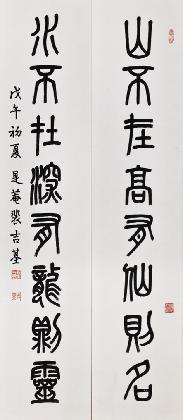 山不在高有仙則名
水不在深有龍則靈
戊午初夏 是菴裴吉基